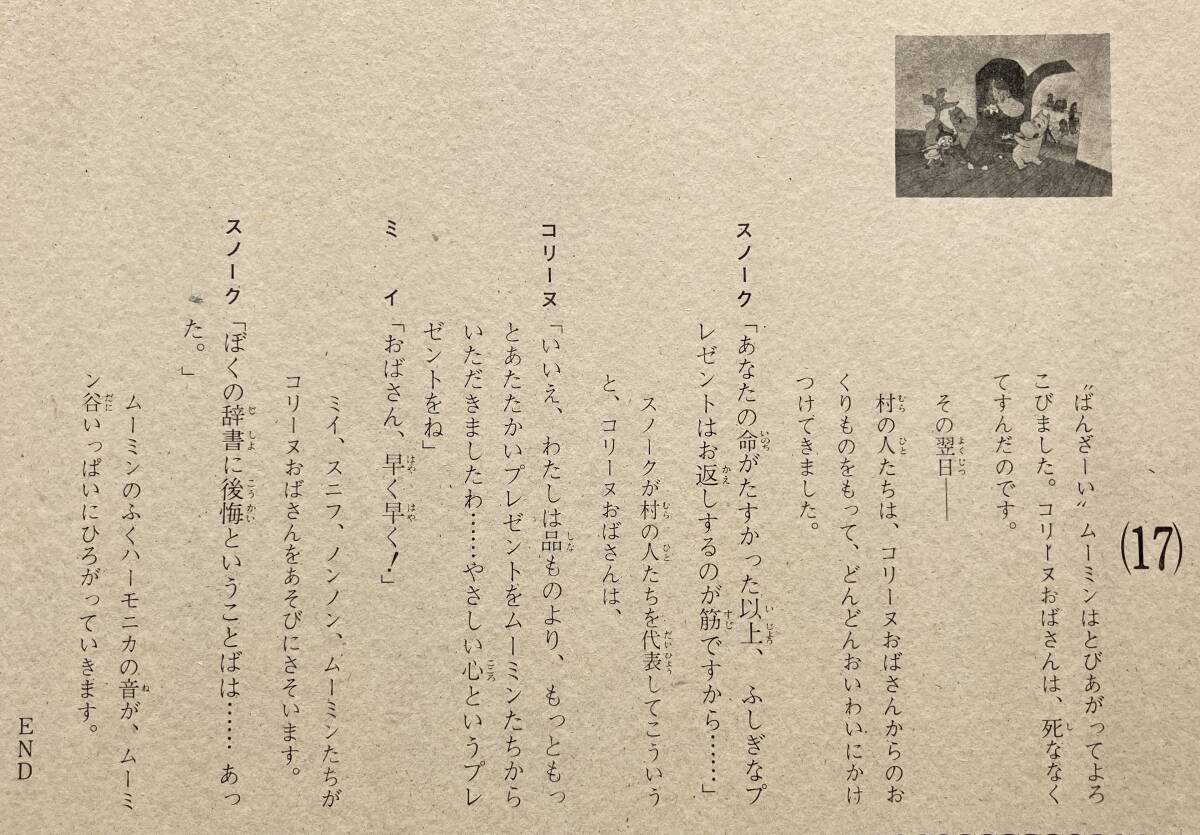 (17)
〝ばんざーい〟ムーミンはとびあがってよろ
こびました。コリーヌおばさんは、死ななく
てすんだのです。
その翌日――
村の人たちは、コリーヌおばさんからのお
くりものをもって、どんどんおいわいにかけ
つけてきました。
スノーク「あなたの命がたすかった以上、ふしぎなプ
レゼントはお返しするのが筋ですから……」
スノークが村の人たちを代表してこういう
と、コリーヌおばさんは、
コリーヌ「いいえ、わたしは品ものより、もっともっ
とあたたかいプレゼントをムーミンたちから
いただきましたわ……やさしい心というプレ
ゼントをね」
ミイ「おばさん、早く早く!」
ミイ、スニフ、ノンノン、ムーミンたちが
コリーヌおばさんをあそびにさそいます。
スノーク「ぼくの辞書に後悔ということばは……あっ
た。」
ムーミンのふくハーモニカの音が、ムーミ
ン谷いっぱいにひろがっていきます。
END